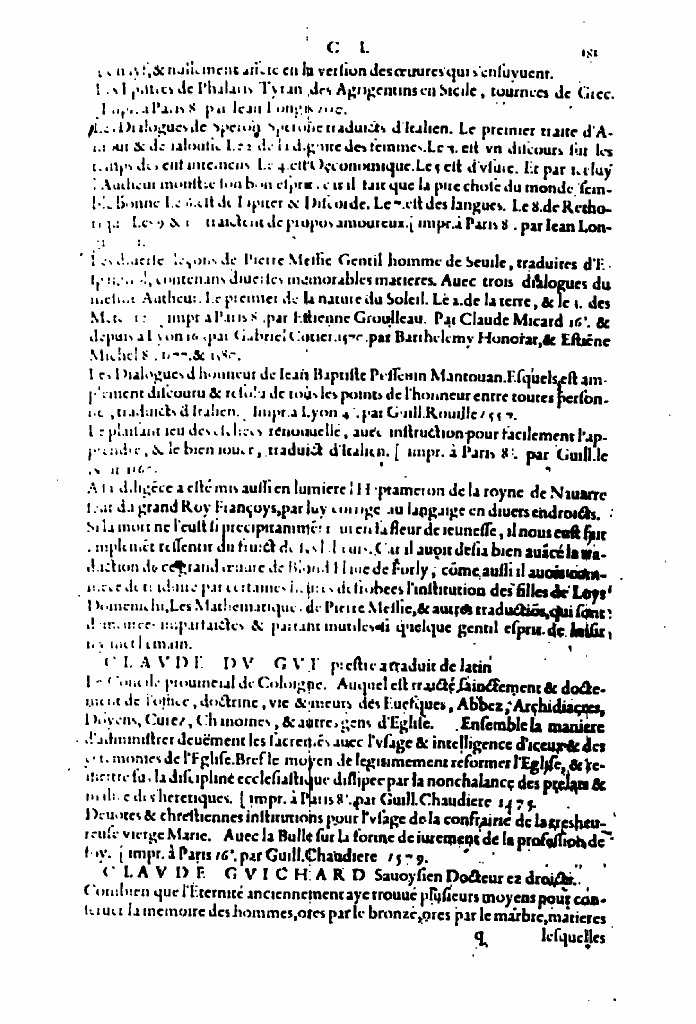 C L 181
& nullement assere en la version des œuures qui s'ensuyuent.
Les Epistres de Phalaris Tyran des Agrigentins en Sicile, tournees de Grec.
Impr. à Paris 8. par Iean Longis
Les Dialogues de Speron Sperone traduicts d'Italien. Le premier traite d'A-
mour & de ialousie. Le 2. de la dignite des femmes. Le 3. est vn discours sur les
temps des enfantemens Le 4. est Oeconomique. Le 5 est d'vsure. Et par icelluy
l'Autheur monstre son bon esprit, car il fait que la pire chose du monde sem-
ble bonne Le 6. est de Discorde. Le 7. est des langues. Le 8. de Retho-
Les 9 & traictent de propos amoureux. [ impr. à Paris 8. par Iean Lon-
Les diuerses leçons de Pierre Messie Gentil homme de Seuile, traduites d'E-
contenans diuerses memorables matieres. Auec trois dialogues du
mesme Autheur. Le premier de la nature du Soleil. Le 2. de la terre, & le 3. des
impr à Paris 8. par Estienne Groulleau. Par Claude Micard 16°. &
depuis à Lyon 16. par Gabriel Cotier. par Barthelemy Honorat, & Estiēne
Michel 8. &
Les Dialogues d honneur de Iean Baptiste Possenin Mantouan. Esquels est am-
plement discouru & resolu de tous les points de l'honneur entre toutes person-
nes, traduicts d'Italien. Impr. à Lyon 4°. par Guill. Rouille 1557.
Le plaisant ieu des eschecs renouuellé, auec instruction pour facilement l'ap-
prendre, & le bien iouer, traduict d'Italien. [ impr. à Paris 8°. par Guill. le
A sa diligēce a esté mis aussi en lumiere l'Heptameron de la royne de Nauarre
seur du grand Roy Françoys, par luy corrigé au langaige en diuers endroicts.
Si la mort ne l'eust si precipitāmēt en sa fleur de ieunesse, il nous eust fait
amplemēt ressentir du fruict de ses labeurs. Car il auoit desia bien auācé la tra-
duction de ce grand œuure de Blond Flaue de Forly, cōme aussi il auoit com-
mencé de traduire par certaines heures desrobees l'institution des filles de Loys
Domenichi, Les Mathematiques de Pierre Messie, & autres traductiōs, qui sont
demeurees imparfaictes & partant mutiles si quelque gentil esprit de loisir
n'y met la main.
CLAVDE DV GVE prestre a traduit de latin
Le Concile prouincial de Coloigne. Auquel est traicté sainctement & docte-
ment de l'office, doctrine, vie & meurs des Euesques, Abbez, Archidiacres,
Doyens, Curez, Chanoines, & autres gens d'Eglise. Ensemble la maniere
d'administrer deuëment les sacremēs auec l'vsage & intelligence d'iceux & des
ceremonies de l'Eglise. Bref le moyen de legitimement reformer l'Eglise, & re-
mettre sus la discipline ecclesiastique dissipee par la nonchalance des prelats &
malice des heretiques. [ impr. à Paris 8°. par Guill. Chaudiere 1475.
Deuotes & chrestiennes institutions pour l'vsage de la confrairie de la tresheu-
reuse vierge Marie. Auec la Bulle sur la forme de iurement de la profession de
foy. [ impr. à Paris 16°. par Guill. Chaudiere 1579.
CLAVDE GVICHARD Sauoysien Docteur ez droicts.
Combien que l'Eternité anciennement aye trouué plusieurs moyens pour con-
seruer la memoire des hommes, ores par le bronze, ores par le marbre, matieres
q lesquelles